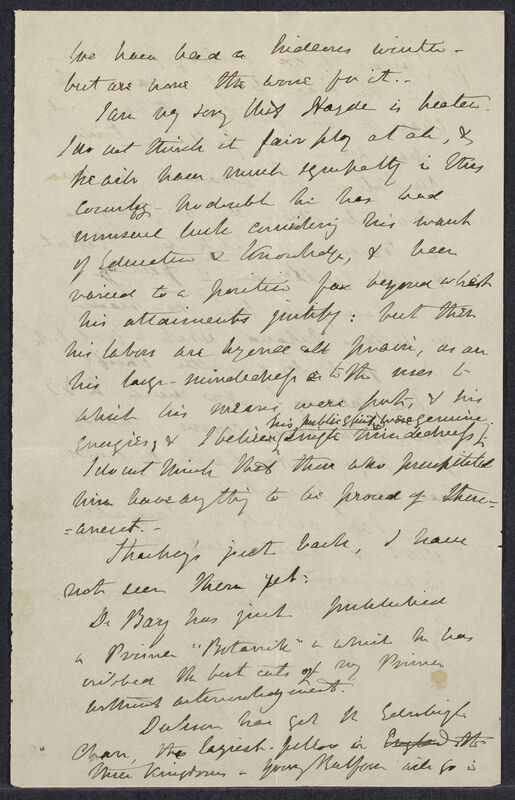 We have had a hideous winter -
but are none the worse for it. -
I am very sorry that Hayden is beaten.
I do not think it fair play at all, &
he will have much sympathy in this
country - no doubt he has had
unusual luck considering his want
of Education & Knowledge, & been
raised to a position far beyond what
his attainments justify: but then
his labors are beyond all praise, as are
his large-mindedness as to the uses to
which his means were put, & his
energies, & I believe
his public spirit were genuine
(single mindedness).
I do not think that those who precipitated
him have anything to be proud of there-
=anent. -
Strachey's just back, I have
not seen them yet.
De Bary has just published
a Primer "Botanik" in which he has
cribbed the best cuts of my Primer
without acknowledgment.
Dickson has got the Edinburgh
Chair, the laziest fellow in England the
three Kingdoms - young Balfour will go in